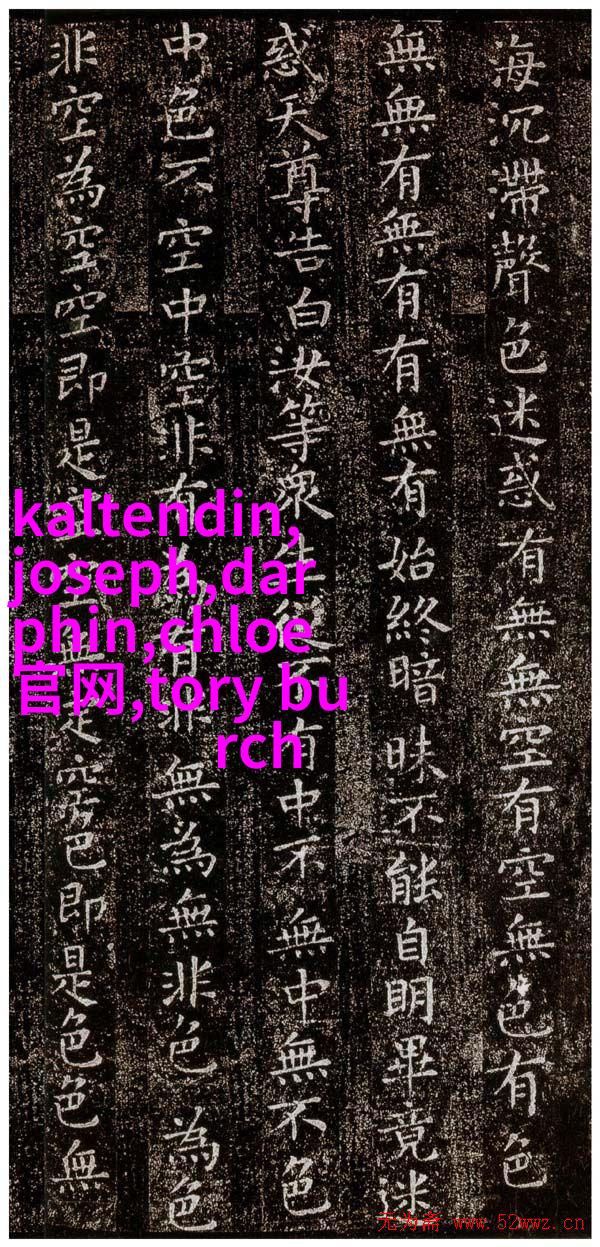 海沉滯聲色迷惑有無無空有空無色有色
無無有無有有無有始終暗昧不能自明畢竟迷
惑天尊告白汝等眾生從不有中不無中無不色
中色不空中空非有為有非無為無非色為色
非空為空空即是空空無定空色即是色色無
kaltendin,
joseph,dar
phin,chloe
官网,tory bu
rch
无为斋 www.52wwz.cn